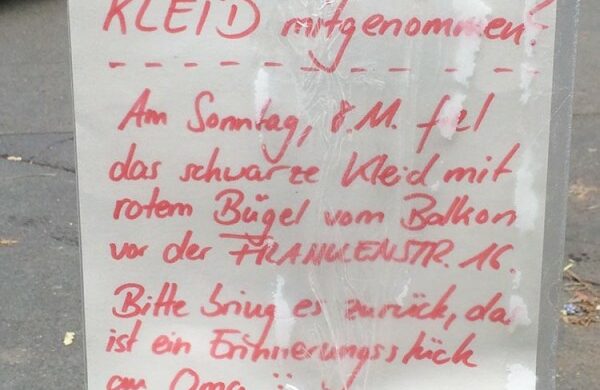 KLEID mitgenommen?
Am Sonntag, 8.11. fiel
das schwarze Kleid mit
rotem Bügel vom Balkon
vor der FRANKENSTR. 16.
Bitte bring es zurück, das
ist ein Erinnerungsstück
an Oma